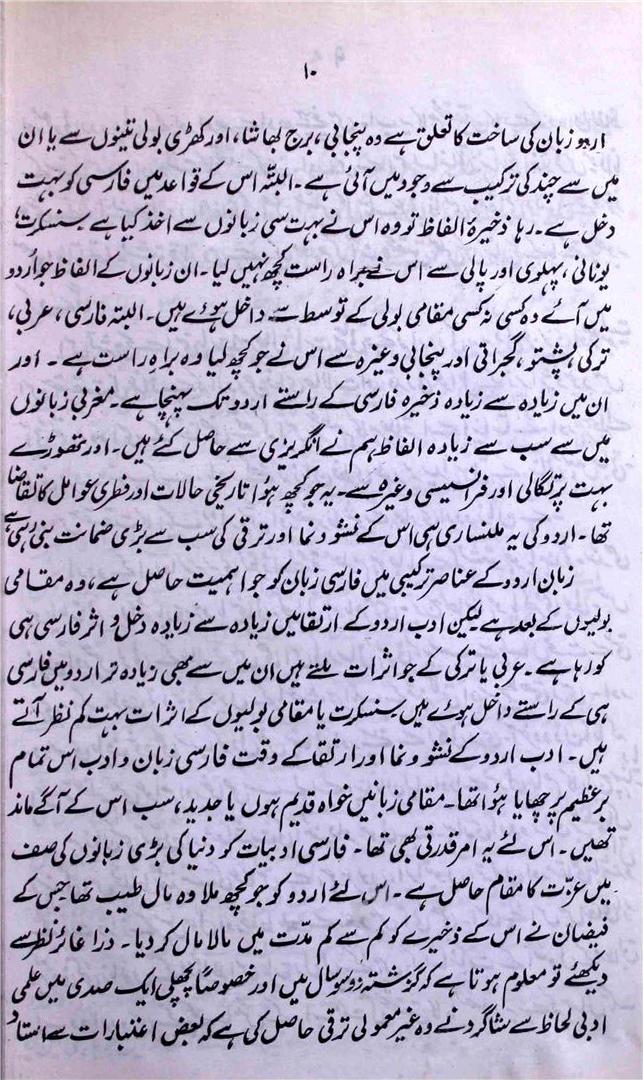 ۱۰
اردو زبان کی ساخت کا تعلق ہے وہ پنجابی، برج بھاشا، اور کھڑی بولی تینوں سے یا ان
میں سے چند کی ترکیب سے وجود میں آئی ہے۔ البتّہ اس کے قواعد میں فارسی کو بہت
دخل ہے۔ رہا ذخیرۂ الفاظ تو وہ اس نے بہت سی زبانوں سے اخذ کیا ہے سنسکرت،
یونانی، پہلوی اور پالی سے اس نے براہ راست کچھ نہیں لیا۔ ان زبانوں کے الفاظ جو اُردو
میں آئے وہ کسی نہ کسی مقامی بولی کے توسط سے داخل ہوئے ہیں۔ البتہ فارسی، عربی،
ترکی، پشتو، گجراتی اور پنجابی وغیرہ سے اس نے جو کچھ لیا وہ براہِ راست ہے۔ اور
ان میں زیادہ سے زیادہ ذخیرہ فارسی کے راستے اردو تک پہنچا ہے۔ مغربی زبانوں
میں سے سب سے زیادہ الفاظ ہم نے انگریزی سے حاصل کئے ہیں۔ اور تھوڑے
بہت پرتگالی اور فرانسیسی وغیرہ سے۔ یہ جو کچھ ہوُا تاریخی حالات اور فطری عوامل کا تقاضا
تھا۔ اردو کی یہ ملنساری ہی اس کے نشو و نما اور ترقی کی سب سے بڑی ضمانت بنی رہی ہے
زبان اردو کے عناصر ترکیبی میں فارسی زبان کو جو اہمیت حاصل ہے، وہ مقامی
بولیوں کے بعد ہے لیکن ادب اردو کے ارتقا میں زیادہ سے زیادہ دخل و اثر فارسی ہی
کو رہا ہے۔ عربی یا ترکی کے جو اثرات ملتے ہیں ان میں سے بھی زیادہ تر اردو میں فارسی
ہی کے راستے داخل ہوئے ہیں سنسکرت یا مقامی بولیوں کے اثرات بہت کم نظر آتے
ہیں۔ ادب اردو کے نشو و نما اور ارتقا کے وقت فارسی زبان و ادب اس تمام
برعظیم پر چھایا ہوُا تھا۔ مقامی زبانیں خواہ قدیم ہوں یا جدید، سب اس کے آگے ماند
تھیں۔ اس لئے یہ امر قدرتی بھی تھا۔ فارسی ادبیات کو دنیا کی بڑی زبانوں کی صف
میں عزّت کا مقام حاصل ہے۔ اس لئے اردو کو جو کچھ ملا وہ مال طیب تھا جس کے
فیضان نے اس کے ذخیرے کو کم سے کم مدّت میں مالا مال کر دیا۔ ذرا غائر نظر سے
دیکھئے تو معلوم ہوتا ہے کہ گزشتہ دو سو سال میں اور خصوصاً پچھلی ایک صدی میں علمی
ادبی لحاظ سے شاگرد نے وہ غیر معمولی ترقی حاصل کی ہے کہ بعض اعتبارات سے استاد